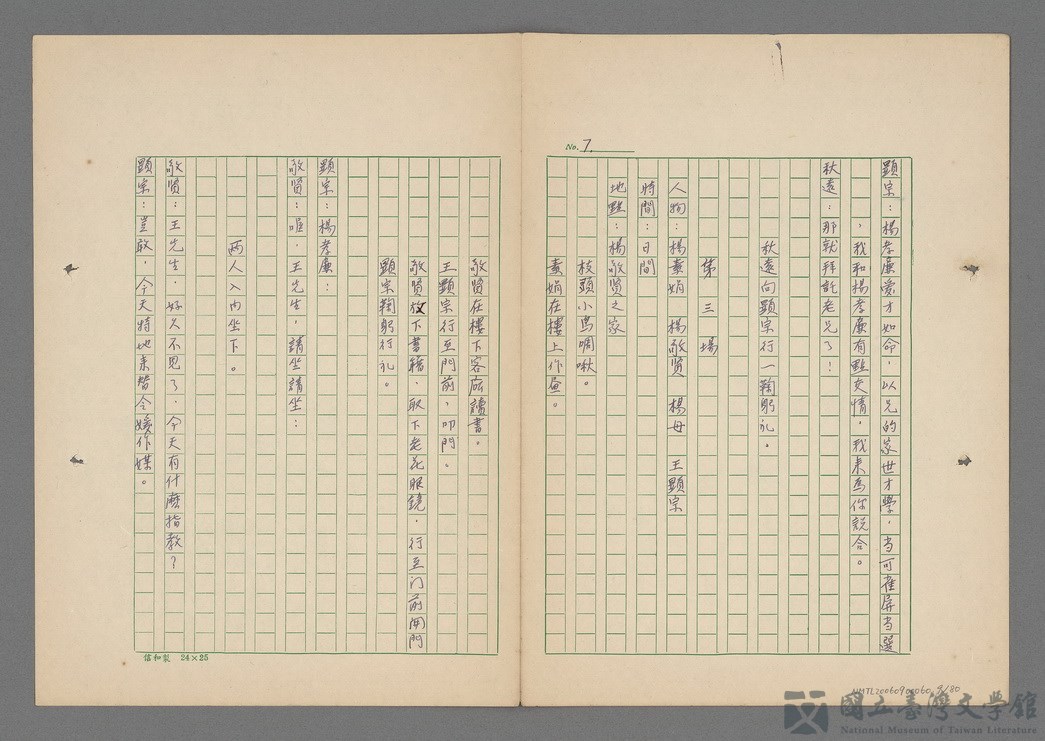 No. 7.
顕宗：楊孝廉愛才如命，以兄的家世才學，当可雀屏当選
，我和楊孝廉有點交情，我来為你説合。
秋遠：那就拜託老兄了！
秋遠向顕宗行一鞠躬礼。
第三場
人物：楊素娟 楊敬賢 楊母 王顕宗
時間：日間
地點：楊敬賢之家
枝頭小鳥啁啾。
素娟在樓上作畫。
敬賢在樓下客庒讀書。
王顕宗行至門前，叩門。
敬賢放下書籍，取下老花眼鏡，行至门前開門
顕宗鞠躬行礼。
顕宗：楊孝廉：
敬賢：喧，王先生，請坐請坐：
兩人入内坐下。
敬賢：王先生，好久不見了，今天有什麽指教？
顕宗：豈敢，今天特地来替令嫒作媒。
信和製 24×25
NMTL20060900060 9/80
國立臺灣文學館
National Museum of Taiwan Literature